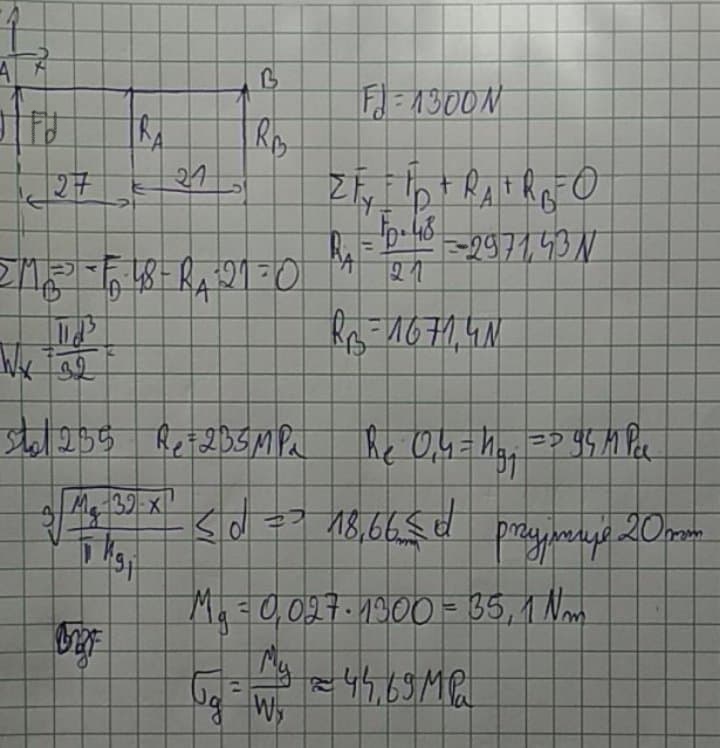 A x
B
Fd
R_A
R_B
27
21
Fd = 1300N
ΣF_y = F_D + R_A + R_B = 0
R_A = F_D·48 / 21 = -2971,43 N
ΣM_B => -F_D·48 - R_A·21 = 0
R_B = 1671,4N
W_x = πd³ / 32 =
stal 235 Re = 235MPa Re 0,4 = kgj => 94MPa
³√(Mg·32·x / π kgj) ≤ d => 18,66mm ≤ d przyjmuje 20mm
Mg = 0,027·1300 = 35,1Nm
σg = Mg / Wx ≈ 44,69MPa